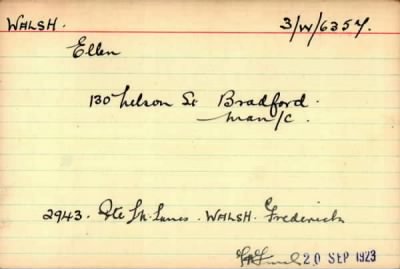 WALSH. 3/W/6357.
Ellen
130 Nelson St Bradford.
Man/c.
2943. Pte L.N. Lancs. WALSH. Frederick
20 SEP 1923